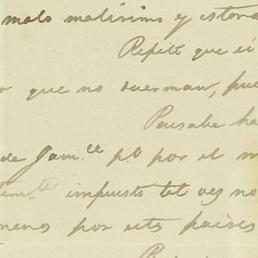 malo malisimo y estora
Repitt que si
r que no duerman, pue
Pasabe ha
de Jam.ce p.o por el m
impuesto tal ves no
menos por estos paises